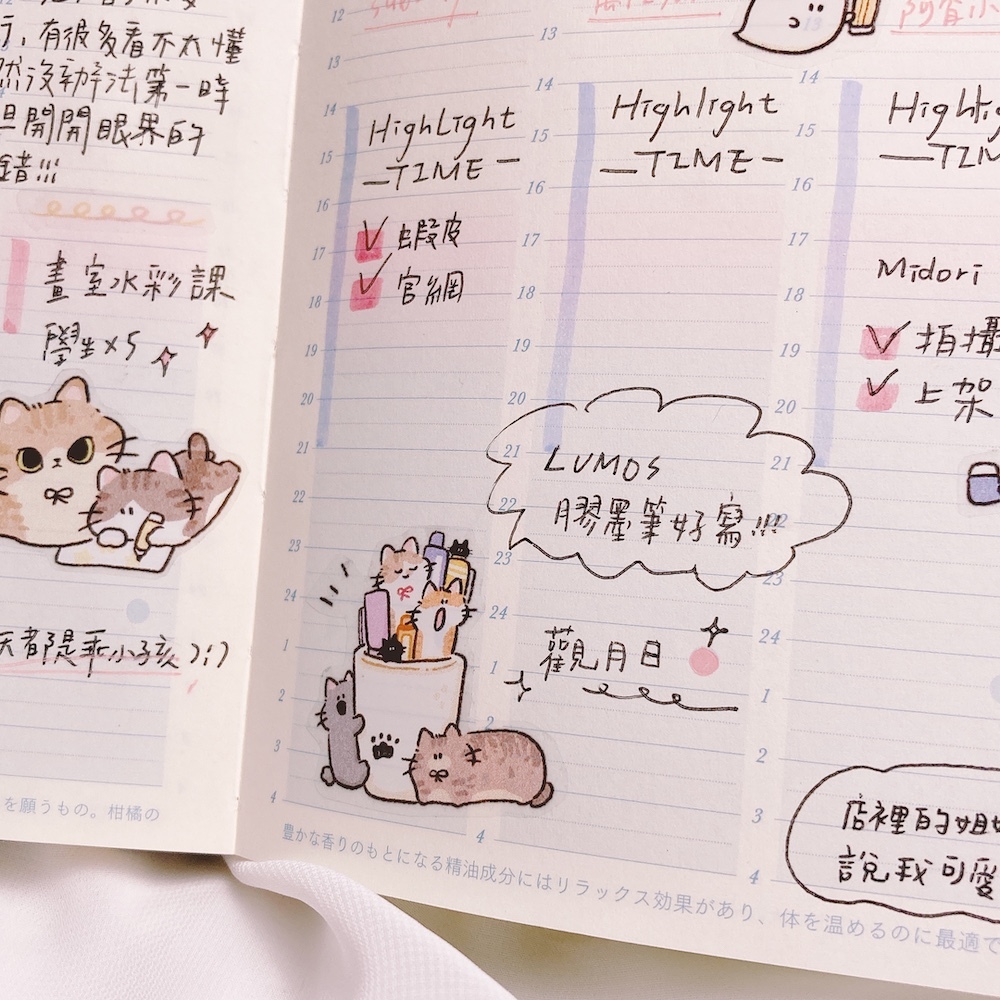 有很多看不太懂
然沒辦法第一時
但開開眼界的
錯!!!
畫室水彩課
學生x5
天都是乖小孩 :)
を願うもの。柑橘の
12
13
14
15
16
17
18
19
20
21
22
23
24
1
2
3
4
HighLight
—TIME—
蝦皮
官網
13
14
15
16
17
18
19
20
21
22
23
24
1
2
4
Highlight
—TIME—
LUMOS
膠墨筆好寫!!!
觀月日
13
14
15
16
17
18
19
20
21
22
23
24
1
2
3
4
Midori
拍攝
上架
店裡的姐
說我可愛
豊かな香りのもとになる精油成分にはリラックス効果があり、体を温めるのに最適で